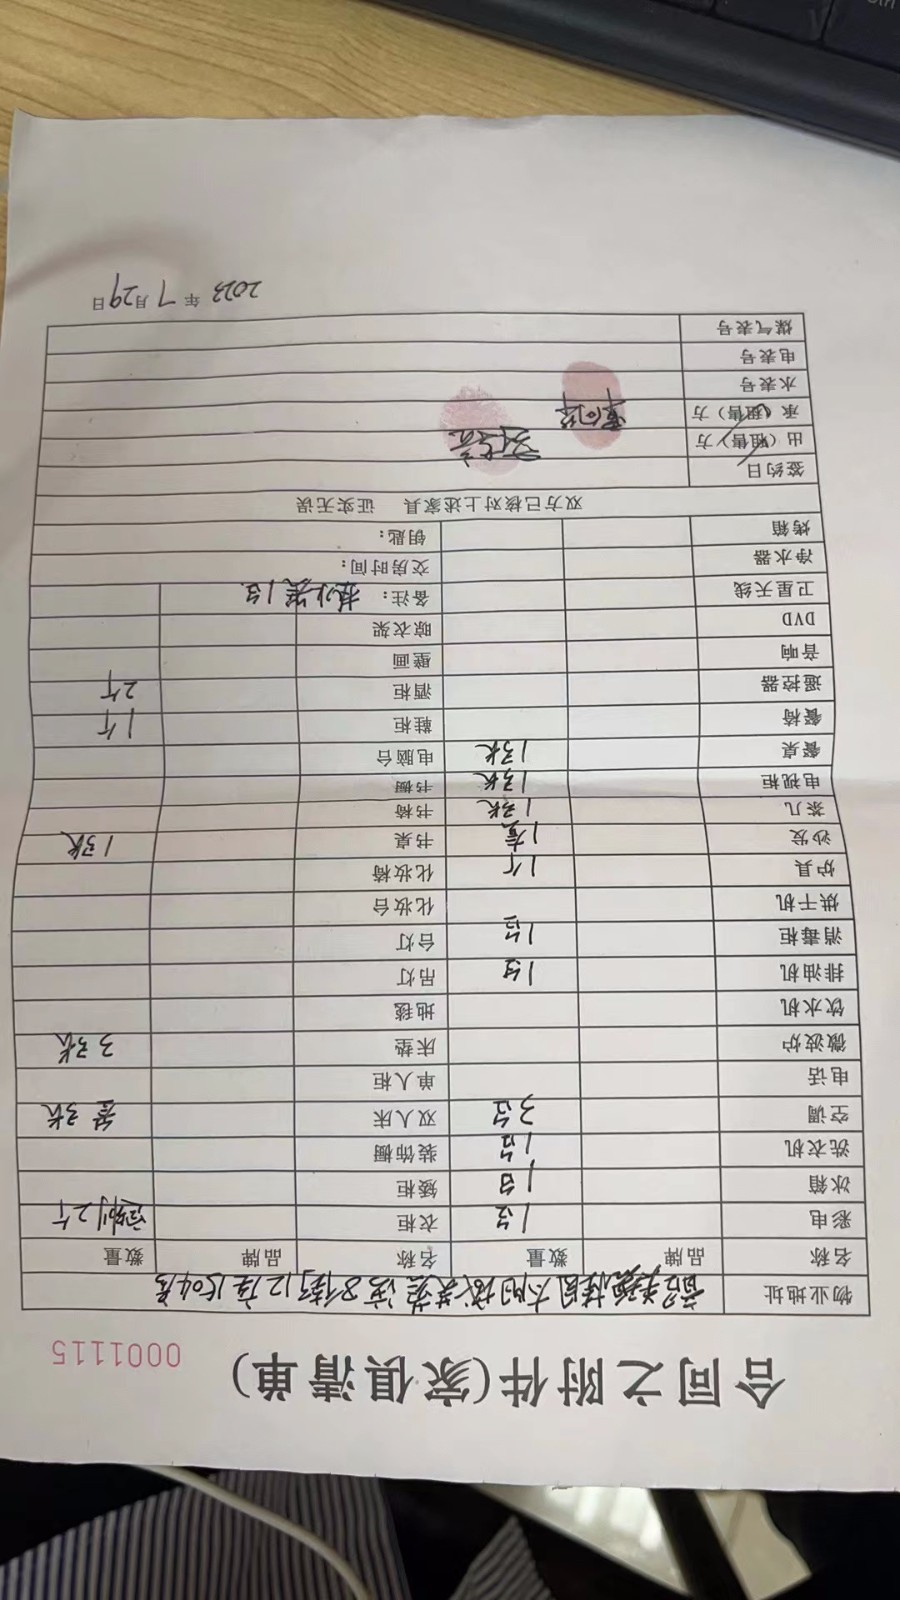 合同之附件(家俱清单)
0001115
物业地址 太阳城 8街12座1504房
名称 品牌 数量 名称 品牌 数量
彩电 1台 衣柜 2个
冰箱 1台 矮柜
洗衣机 1台 装饰橱
空调 3台 双人床 3张
电话 单人柜
微波炉 床垫 3张
饮水机 地毯
排油机 1台 吊灯
消毒柜 1台 台灯
烘干机 化妆台
炉具 1个 化妆椅
沙发 1套 书桌 1张
茶几 1张 书椅
电视柜 1张 书橱
餐桌 1张 电脑台
餐椅 鞋柜 1个
遥控器 酒柜 2个
音响 壁画
DVD 晾衣架
卫星天线 备注: 热水器1台
净水器 交房时间:
烤箱 钥匙:
双方已核对上述家具 证实无误
签约日
出(租售)方
承(租售)方
水表号
电表号
煤气表号
2023年7月29日
Ctrl